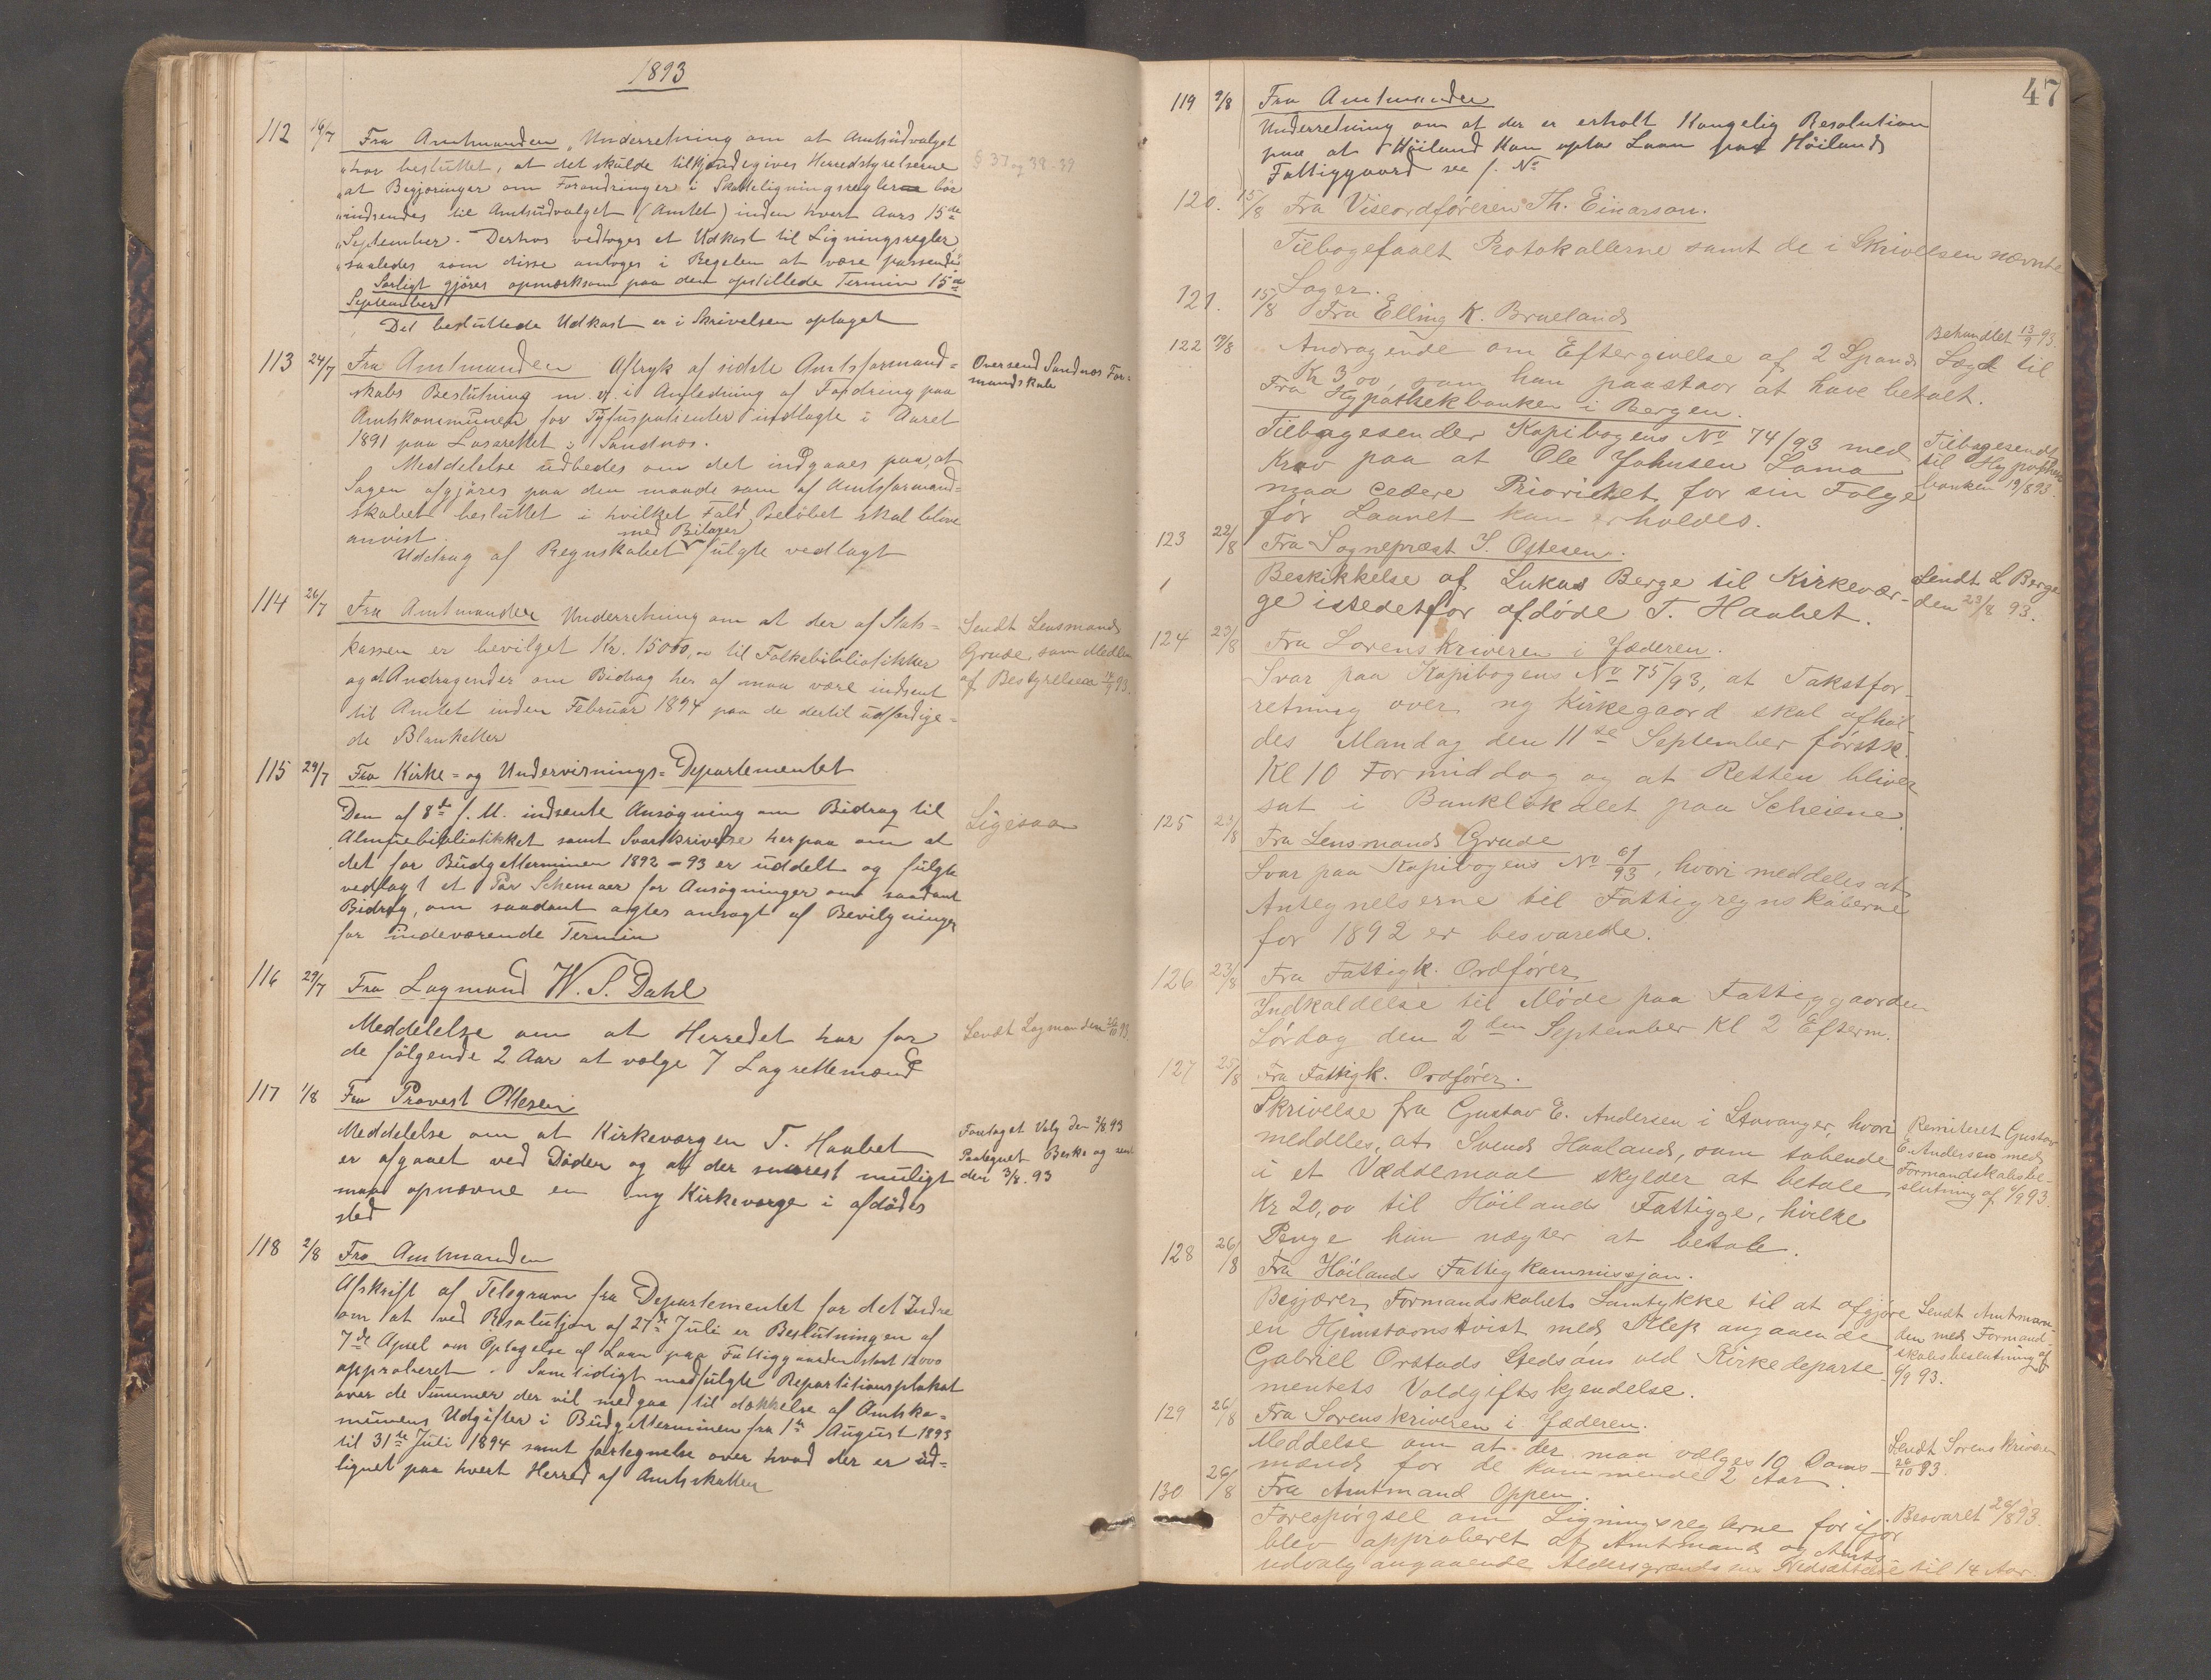 1893
112 19/7 Fra Amtmanden „Underretning om at Amtsudvalget
„har besluttet, at det skulde tilkjendegives Herredstyrelserne § 37 og 38-39
„at Begjæringer om Forandringer i Skatteligningsreglerne bör
„indsendes til Amtsudvalget (Amtet) inden hvert Aars 15de
„September. Derhos vedtoges et Udkast til Ligningsregler
„saaledes som disse antages i Regelen at være passende"
Særligt gjöres opmærksom paa den opstillede Termin 15de
September
Det besluttede Udkast er i Skrivelsen optaget
113 24/7 Fra Amtmanden Aftryk af sidste Amtsformand= Oversend Sandnæs For=
skabs Beslutning m. v. i Anledning af Fordring paa mandskab
Amtskommunen for Tyfuspatienter indlagte i Aaret
1891 paa Lasarettet i Sandnæs.
Meddelelse udbedes om det indgaaes paa, at
Sagen afgjöres paa den maade som af Amtsformand=
skabet besluttet i hvilket Fald Belöbet skal blive
anvist.
med Bilager
Uddrag af Regnskabet fulgte vedlagt
114 26/7 Fra Amtmanden Underretning om at der af Stats=
kassen er bevilget Kr. 15000,- til Folkebibliotikker
og at Andragender om Bidrag her af maa være indsent
til Amtet inden Februar 1894 paa de dertil udfærdige=
de Blanketter
Sendt Lensmand
Grude som Medlem
af Bestyrelsen
115 29/7 Fra Kirke= og Undervisnings= Departementet
Den af 8de f. M. indsente Ansögning om Bidrag til
Almuebibliotikket samt Svarskrivelse herpaa om at Ligesaa
det for Budgetterminen 1892-93 er uddelt og fulgte
vedlagt et Par Schemaer for Ansögninger om saadant
Bidrag, om saadant agtes ansögt af Bevilgninger
for indeværende Termin
116 29/7 Fra Lagmand W. S. Dahl
Meddelelse om at Herredet har for Sendt Lagmanden
de fölgende 2 Aar at vælge 7 Lagrettemænd
117 1/8 Fra Provest Ottesen
Meddelelse om at Kirkeværgen T. Haabet
er afgaaet ved Döden og at der snarest muligt
maa opnævne en ny Kirkeværge i afdödes
sted
Foretaget Valg den 2/8 93
Paategnet Besk. og sent
den 3/8. 93
118 2/8 Fra Amtmanden
Afskrift af Telegram fra Departementet for det Indre
om at ved Resolutjon af 27de Juli er Beslutningen af
7de April om Optagelse af Laan paa Fattiggaarden stort 12000
approberet. Samtidigt medfulgte Repartitionsplakat
over de Summer der vil medgaa til dækkelse af Amtsko=
munens Udgifter i Budgetterminen fra 1ste August 1893
til 31te Juli 1894 samt fortegnelse over hvad der er ud=
lignet paa hvert Herred af Amtsskatten
47
119 9/8 Fra Amtmanden
Underretning om at der er erholt Kongelig Resolution
paa at Höiland kan optar Laan paa Höilands
Fattiggaard see f. No
120. 15/8 Fra Viseordföreren Th. Einarson.
Tilbagefaaet Protokallerne samt de i Skrivelsen nævnte
Sager.
121. 15/8 Fra Elling K. Bruelands
Andragende om Eftergivelse af 2 Spands Lægd til
Kr 3,00, som han paastaar at have betalt.
Behandlet 13/9 93.
122 17/8 Fra Hypothekbanken i Bergen.
Tilbagesender Kopibogens No 74/93 med
Krav paa at Ole Johnsen Lama
maa cedere Prioritet for sin Folge
för Laanet kan erholdes.
Tilbagesendt
til Hypothek
banken 19/8 93.
123 22/8 Fra Sognepræst I. Ottesen.
Beskikkelse af Lukas Berge til Kirkevær-
ge istedetfor afdöde T. Haabet.
Sendt L Berge
den 23/8 93.
124 23/8 Fra Sorenskriveren i Jæderen.
Svar paa Kopibogens No 75/93, at Takstfor-
retning over ny Kirkegaard skal afhol-
des Mandag den 11te September förstk.
Kl 10 Formiddag og at Retten bliver
sat i Banklokalet paa Scheiene.
125 23/8 Fra Lensmands Grude
Svar paa Kopibogens No 61/93, hvori meddeles at
Antegnelserne til Fattigregnskaberne
for 1892 er besvarede.
126 23/8 Fra Fattigk. Ordförer
Indkaldelse til Möde paa Fattiggaarden
Lördag den 2den September Kl 2 Efterm.
127 25/8 Fra Fattigk. Ordförer.
Skrivelse fra Gustav E. Andersen i Stavanger, hvori
meddeles, at Svends Haalands, som tabende
i et Væddemaal skylder at betale
Kr 20,00 til Höilands Fattigge, hvilke
Penge han nægter at betale.
Remiteret Gustav
E. Andersen med
Formandskabsbe-
slutning af 6/9 93.
128 26/8 Fra Höilands Fattigkommissjon.
Begjærer Formandskabets Samtykke til at afgjöre
en Hjemstavnstvist med Klep angaaende
Gabriel Orstads Stedsöns ved Kirkedeparte-
mentets Voldgiftskjendelse.
Sendt Amtman-
den med Formand
skabsbeslutning af
6/9 93.
129 26/8 Fra Sorenskriveren i Jæderen.
Meddelse om at der maa vælges 10 Doms-
mænds for de kommende 2 Aar.
Sendt Sorenskriveren
20/10 93.
130 26/8 Fra Amtmand Oppen.
Forespörgsel om Ligningsreglerne for ifjor
blev approberet af Amtmands og Amts
udvalg angaaende Aldersgrænds Nedsættelse til 14 Aar.
Besvaret 29/8 93.